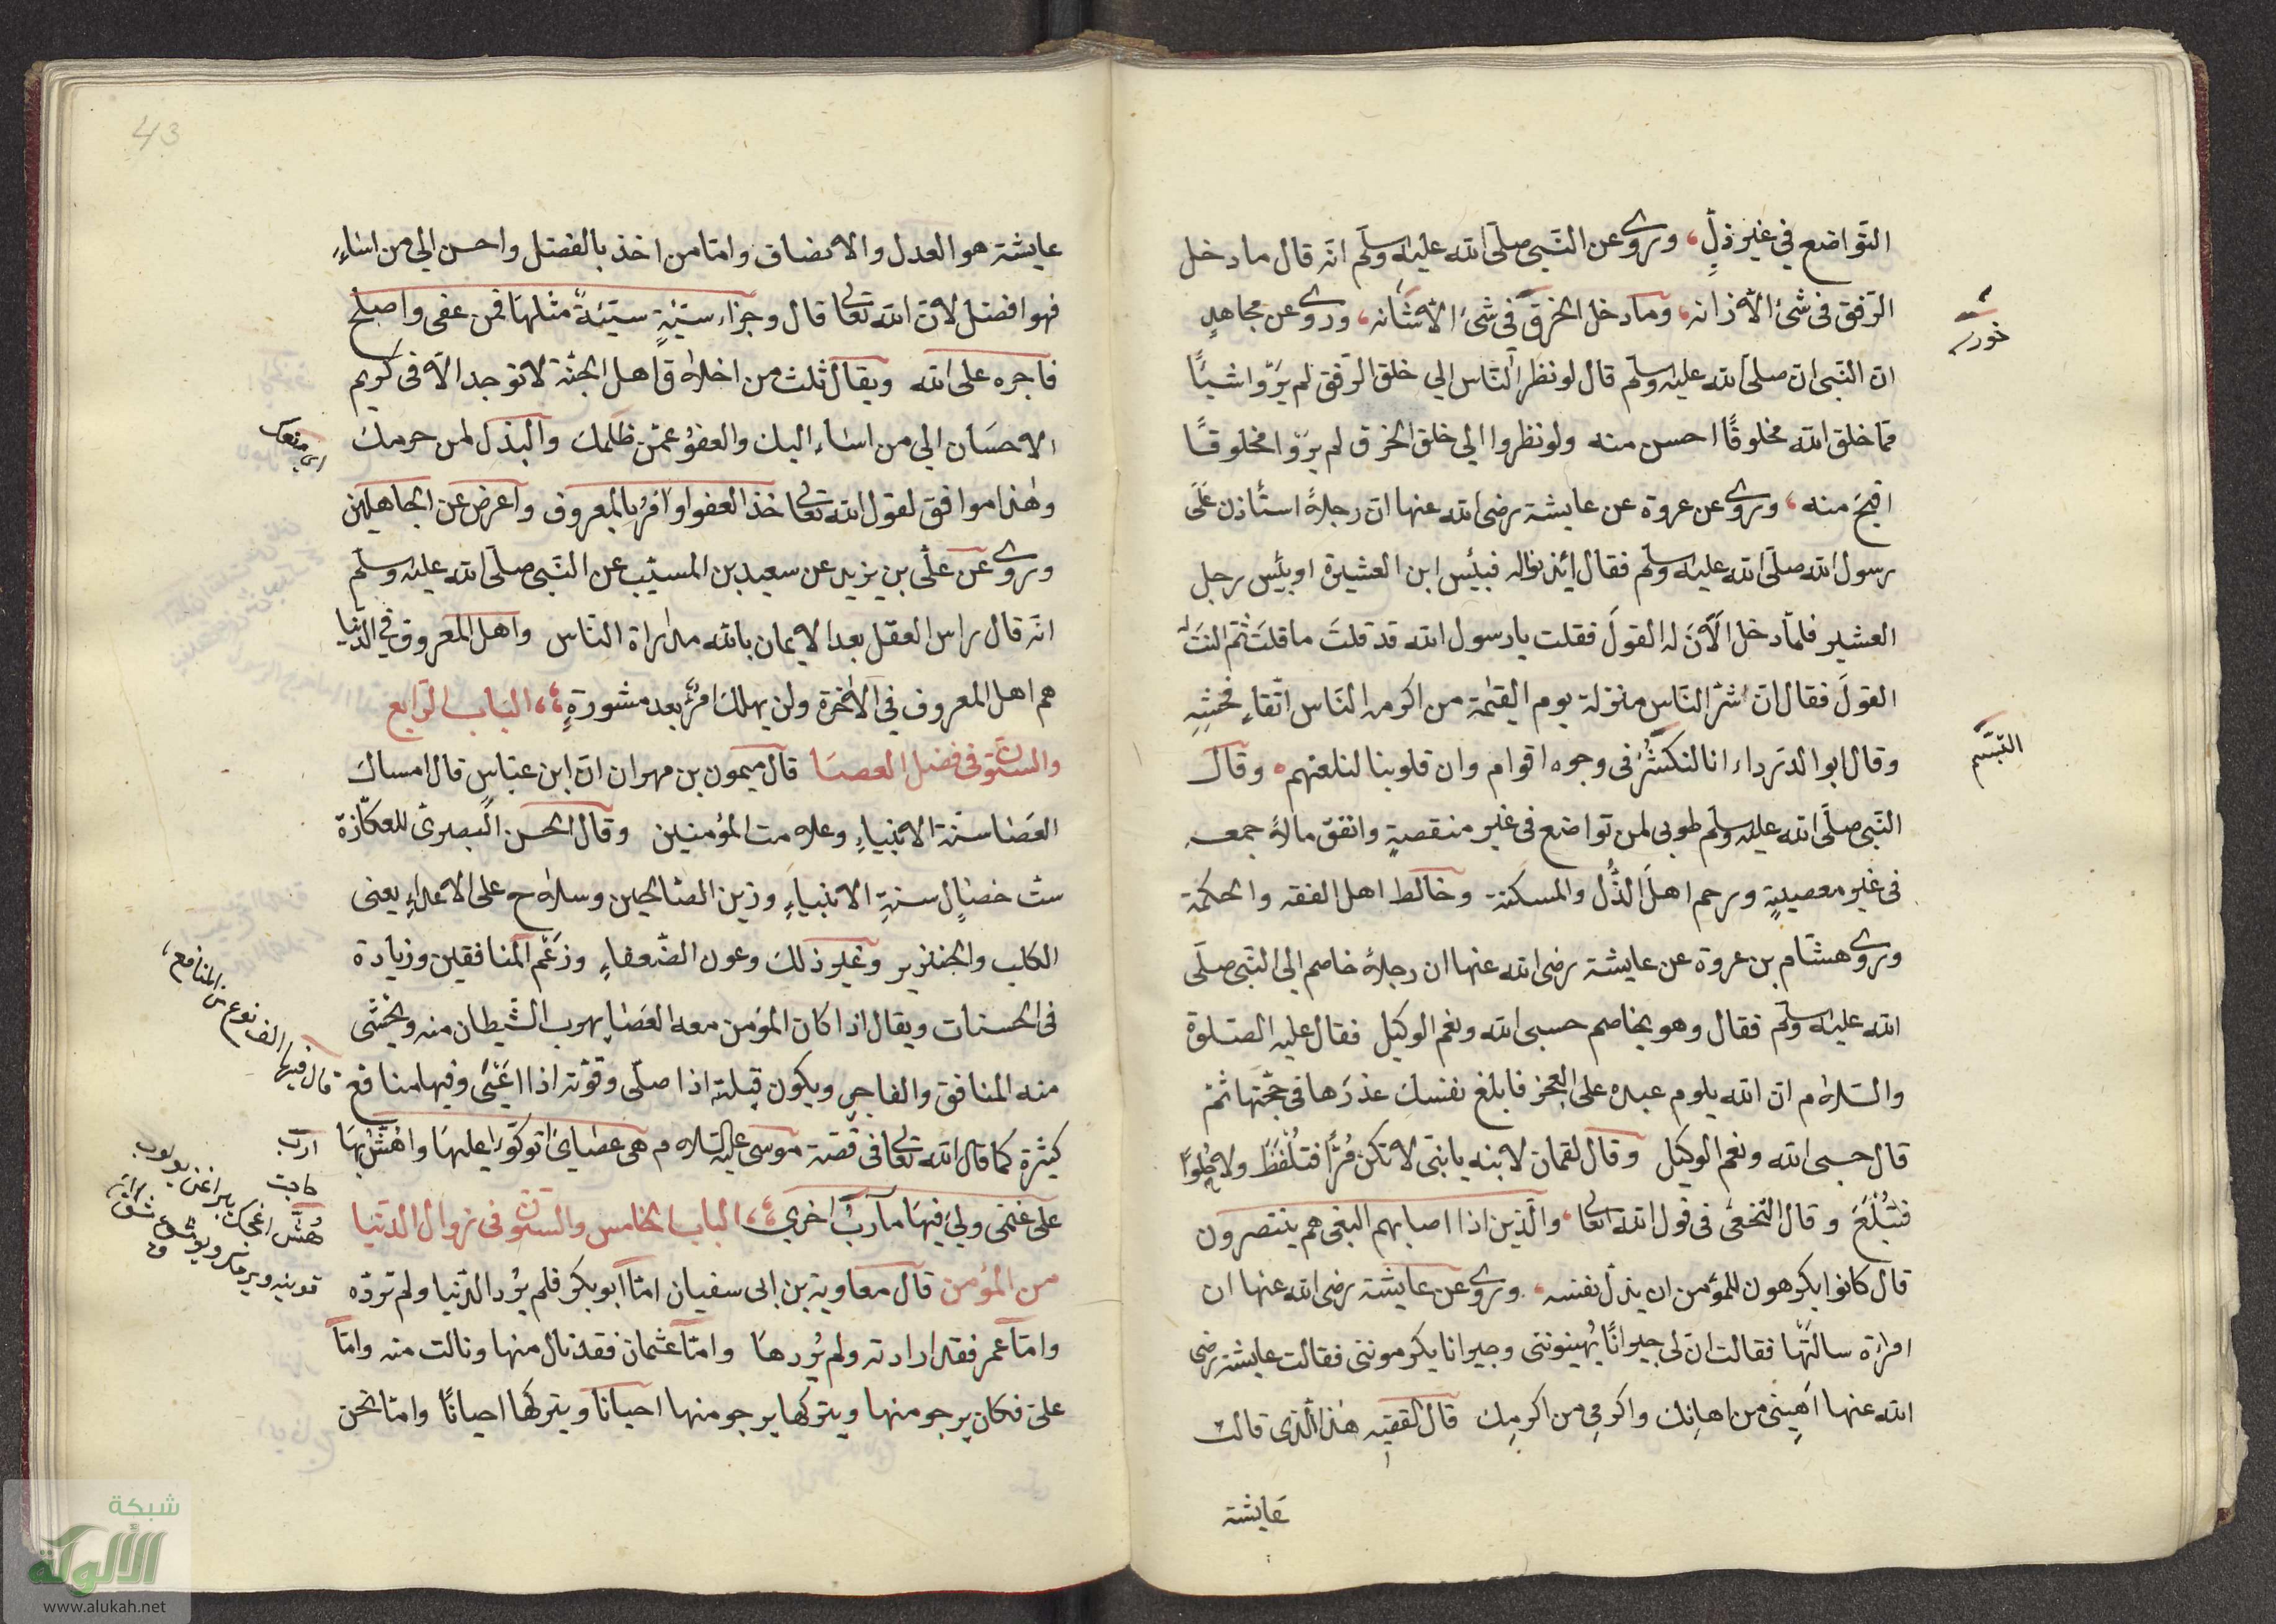 التواضع في غير ذلٍ، وروى عن النّبى صلّى الله عليه وسلّم انّه قال ما دخل
الرّفق فى شئ الاّ زانه، وما دخل الخرق فى شئ الاّ شانه، وروى عن مجاهدٍ
خورة
ان النّبى ان صلّى الله عليه وسلّم قال لو نظر النّاس الي خلق الرّفق لم يَرَوا شيًا
ممّا خلق الله مخلوقًا احسن منه ولو نظروا الي خلق الخرق لم يروا مخلوقًا
اقبحَ منه، وروى عن عروة عن عايشة رضى الله عنها ان رجلاً استأذن عَلَى
رسول الله صلّى الله عليه وسلّم فقال ائذنوا له فبئس ابن العشيرة او بئس رجل
العشير فلمّا دخل اَلاَنَ له القولَ فقلت يا رسول الله قد قلتَ ما قلتَ ثمّ النتَ له
القولَ فقال انّ اشرّ النّاس منزلة يوم القيٰمة من اكرمه النّاس اتّقاءِ فحشِهِ
وقال ابو الدّرداء انا لنكشُر فى وجوه اقوام وان قلوبنا لتلعنهم، وقال
التبسّم
النّبى صلّى الله عليه وسلّم طوبى لمن تواضع فى غير منقصةٍ وانفق مالاً جمعه
فى غير معصيةٍ ورحم اهلَ الذُّل والمسكنة وخالط اهل الفقه والحكمة
وروى هشام بن عروة عن عايشة رضى الله عنها ان رجلاً خاصم الي النّبى صلّى
الله عليه وسلّم فقال وهو يخاصم حسبى الله ونعم الوكيل فقال عليه الصّلوة
والسّلام ان الله يلوم عبده على العجز فابلغ نفسك عذرَها فى حجّتها ثمّ
قال حسبى الله ونعم الوكيل وقال لقمان لابنه يا بنىّ لا تكن مُرًّا فتُلْفَظَ ولا حُلوًا
فتُبْلَعَ وقال النّخعى فى قول الله تعالى، والّذين اذا اصابهم البغى هم ينتصرون
قال كانوا يكرهون للمؤمن ان يذلّ نفسه، وروى عن عايشة رضى الله عنها ان
امراة سالَتْها فقالت ان لى جيرانًا يُهينوننى وجيرانا يكرموننى فقالت عايشة رضى
الله عنها اَهينى من اهانك واكرمى من اكرمك قال الفقيه هٰذا الّذى قالت
عايشة
43
عايشة هو العدل والانصاف وامّا من اخذ بالفضل واحسن الي من اساءِ
فهو افضل لانّ الله تعالى قال وجزاء سيّئةٍ سيّئةٌ مثلها فمن عفى واصلح
فاجره على الله ويقال ثلث من اخلاق اهل الجنّة لا توجد الاّ فى كريم
الاحسَان الي من اسَاء اليك والعفوُ عمّن ظلمك والبذل لمن حرمك
اى منعك
وهٰذا موافق لقول الله تعالى خذ العفو وأمر بالمعروف واعرض عن الجاهلين
وروى عن علّى بن يزيد عن سعيد بن المسيّب عن النّبى صلّى الله عليه وسلّم
انّه قال راس العقل بعد الايمان بالله مداراة النّاس واهل المعروف فى الدّنيا
هم اهل المعروف فى الاٰخرة ولن يهلك امرُؤ بعد مشورةٍ، الباب الرّابع
والستّون فى فضل العصَا قال ميمون بن مهران انّ ابن عبّاس قال امساك
العَصَا سنّة الانبياءِ وعلامت المؤمنين وقال الحسن البصرىّ للعكّازة
ستّ خصَالٍ سنةِ الانبياءِ وزين الصّالحين وسلاح على الاعداءِ يعنى
الكلب والخنزير وغير ذلك وعون الضّعفاءِ وزعم المنافقين وزيادة
فى الحسنات ويقال اذا كان المؤمن معه العَصَا يهرب الشّيطان منه ويخشى
منه المنافق والفاجر ويكون قبلته اذا صلّى وقوّته اذا اَعْيَى وفيها منافع
قال فيها الف نوع من المنافع،
كثيرة كما قال الله تعالى فى قصّة موسى عليه السّلام هى عصَاىَ اتوكّؤا عليهَا واهُشّ بهَا
ارب
حاجت
على غنمى ولي فيهَا مآرب اخرى، الباب الخامس والستون فى زوال الدّنيا
من المؤمن قال معاوية بن ابى سفيان امّا ابو بكر فلم يُرد الدّنيا ولم تردّه
وامّا عمر فقد ارادته ولم يُردهَا وامّا عثمان فقد نال منها ونالت منه وامّا
علىّ فكان يرجو منها ويتركها يرجو منها احيانا ويتركها احيانًا وامّا نحن
شبكة
الألوكة
www.alukah.net